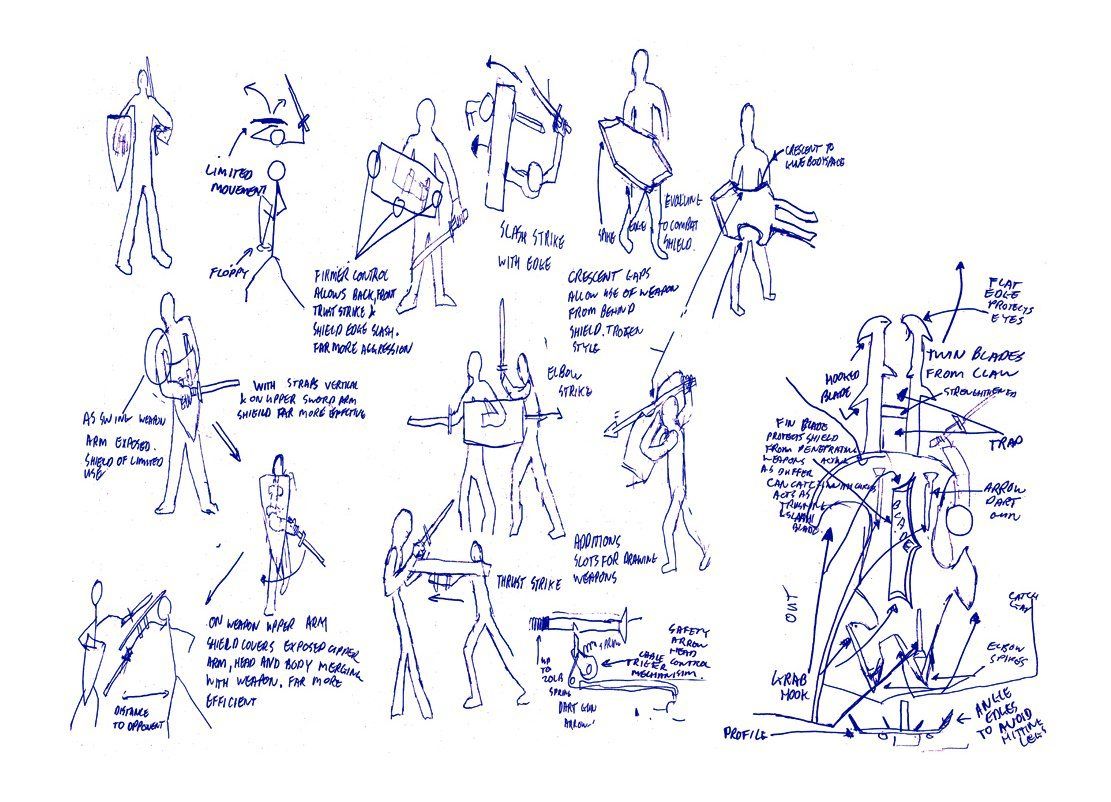 LIMITED
MOVEMENT
FLOPPY
FIRMER CONTROL
ALLOWS BACK, FRONT
TRUST STRIKE &
SHIELD EDGE SLASH.
FAR MORE AGGRESSION
SLASH STRIKE
WITH EDGE
EDGE
EVOLVING
TO COMBAT
SHIELD.
CRESCENT TO
BODY SPACE
CRESCENT GAPS
ALLOW USE OF WEAPON
FROM BEHIND
SHIELD, TROJEN
STYLE
AS SWING WEAPON
ARM EXPOSED.
SHIELD OF LIMITED
USE
WITH STRAPS VERTICAL
& ON UPPER SWORD ARM
SHIELD FAR MORE EFFECTIVE
ELBOW
STRIKE
ON WEAPON UPPER ARM
SHIELD COVERS EXPOSED UPPER
ARM, HEAD AND BODY MERGING
WITH WEAPON. FAR MORE
EFFICIENT
DISTANCE
TO OPPONENT
THRUST STRIKE
ADDITIONS
SLOTS FOR DRAWING
WEAPONS
UP
TO
20LB
SPRING
SPRING
DART GUN
ARROW
SAFETY
ARROW
HEAD
CABLE
TRIGER CONTROL
MECHANISIM.
FLAT
EDGE
PROTECTS
EYES
TWIN BLADES
FROM CLAW
HOOKED
BLADE
STRENGHTHENED
TRAP
FIN BLADE
PROTECTS SHIELD
FROM PENETRATING
WEAPONS
AS BUFFER
CAN CATCH
ACTS AS
BLADE.
BLADE
ARROW
DART
GUN
OUT
GRAB
HOOK
CATCH
ELBOW
SPIKES
PROFILE
ANGLE
EDGES
TO AVOID
HITTING
LEGS